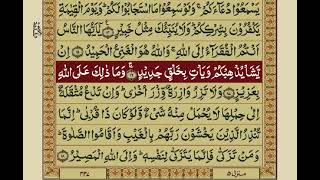 يَسْمَعُوْا دُعَآءَكُمْ ۚ وَلَوْ سَمِعُوْا مَا اسْتَجَابُوْا لَكُمْ ؕ وَيَوْمَ الْقِيٰمَةِ
يَكْفُرُوْنَ بِشِرْكِكُمْ ؕ وَلَا يُنَبِّئُكَ مِثْلُ خَبِيْرٍ ۝ يٰۤاَيُّهَا النَّاسُ
اَنْتُمُ الْفُقَرَآءُ اِلَى اللّٰهِ ۚ وَاللّٰهُ هُوَ الْغَنِيُّ الْحَمِيْدُ ۝ اِنْ
يَّشَاْ يُذْهِبْكُمْ وَيَاْتِ بِخَلْقٍ جَدِيْدٍ ۝ وَمَا ذٰلِكَ عَلَى اللّٰهِ
بِعَزِيْزٍ ۝ وَلَا تَزِرُ وَازِرَةٌ وِّزْرَ اُخْرٰى ؕ وَاِنْ تَدْعُ مُثْقَلَةٌ
اِلٰى حِمْلِهَا لَا يُحْمَلْ مِنْهُ شَيْءٌ وَّلَوْ كَانَ ذَا قُرْبٰى ؕ اِنَّمَا
تُنْذِرُ الَّذِيْنَ يَخْشَوْنَ رَبَّهُمْ بِالْغَيْبِ وَاَقَامُوا الصَّلٰوةَ ؕ
وَمَنْ تَزَكّٰى فَاِنَّمَا يَتَزَكّٰى لِنَفْسِهٖ ؕ وَاِلَى اللّٰهِ الْمَصِيْرُ ۝
منزل ۵